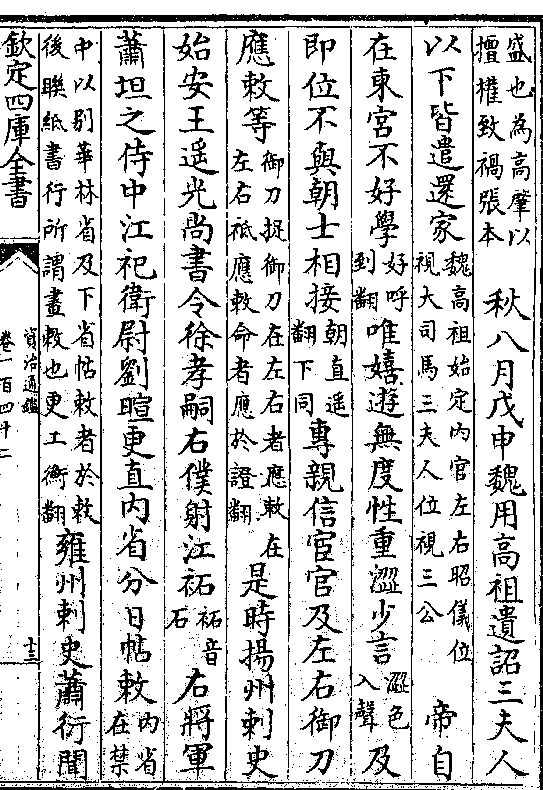 盛也為高肇以擅權致禍張本 秋八月戊申魏用高祖遺詔三夫人
以下皆遣還家魏高祖始定內官左右昭儀位視大司馬三夫人位視三公 帝自
在東宮不好學好呼到翻唯嬉遊無度性重澀少言澀色入聲及
即位不與朝士相接朝直遥翻下同專親信宦官及左右御刀
應敕等御刀捉御刀在左右者應敕在左右祗應敕命者應於證翻是時揚州刺史
始安王遥光尚書令徐孝嗣右僕射江祏祏音石右將軍
蕭坦之侍中江祀衛尉劉暄更直內省分日帖敕內省在禁
中以别華林省及下省帖敕者於敕後聯紙書行所謂畫敕也更工衡翻雍州刺史蕭衍聞
欽定四庫全書
資治通鑑
卷一百四十二
十三